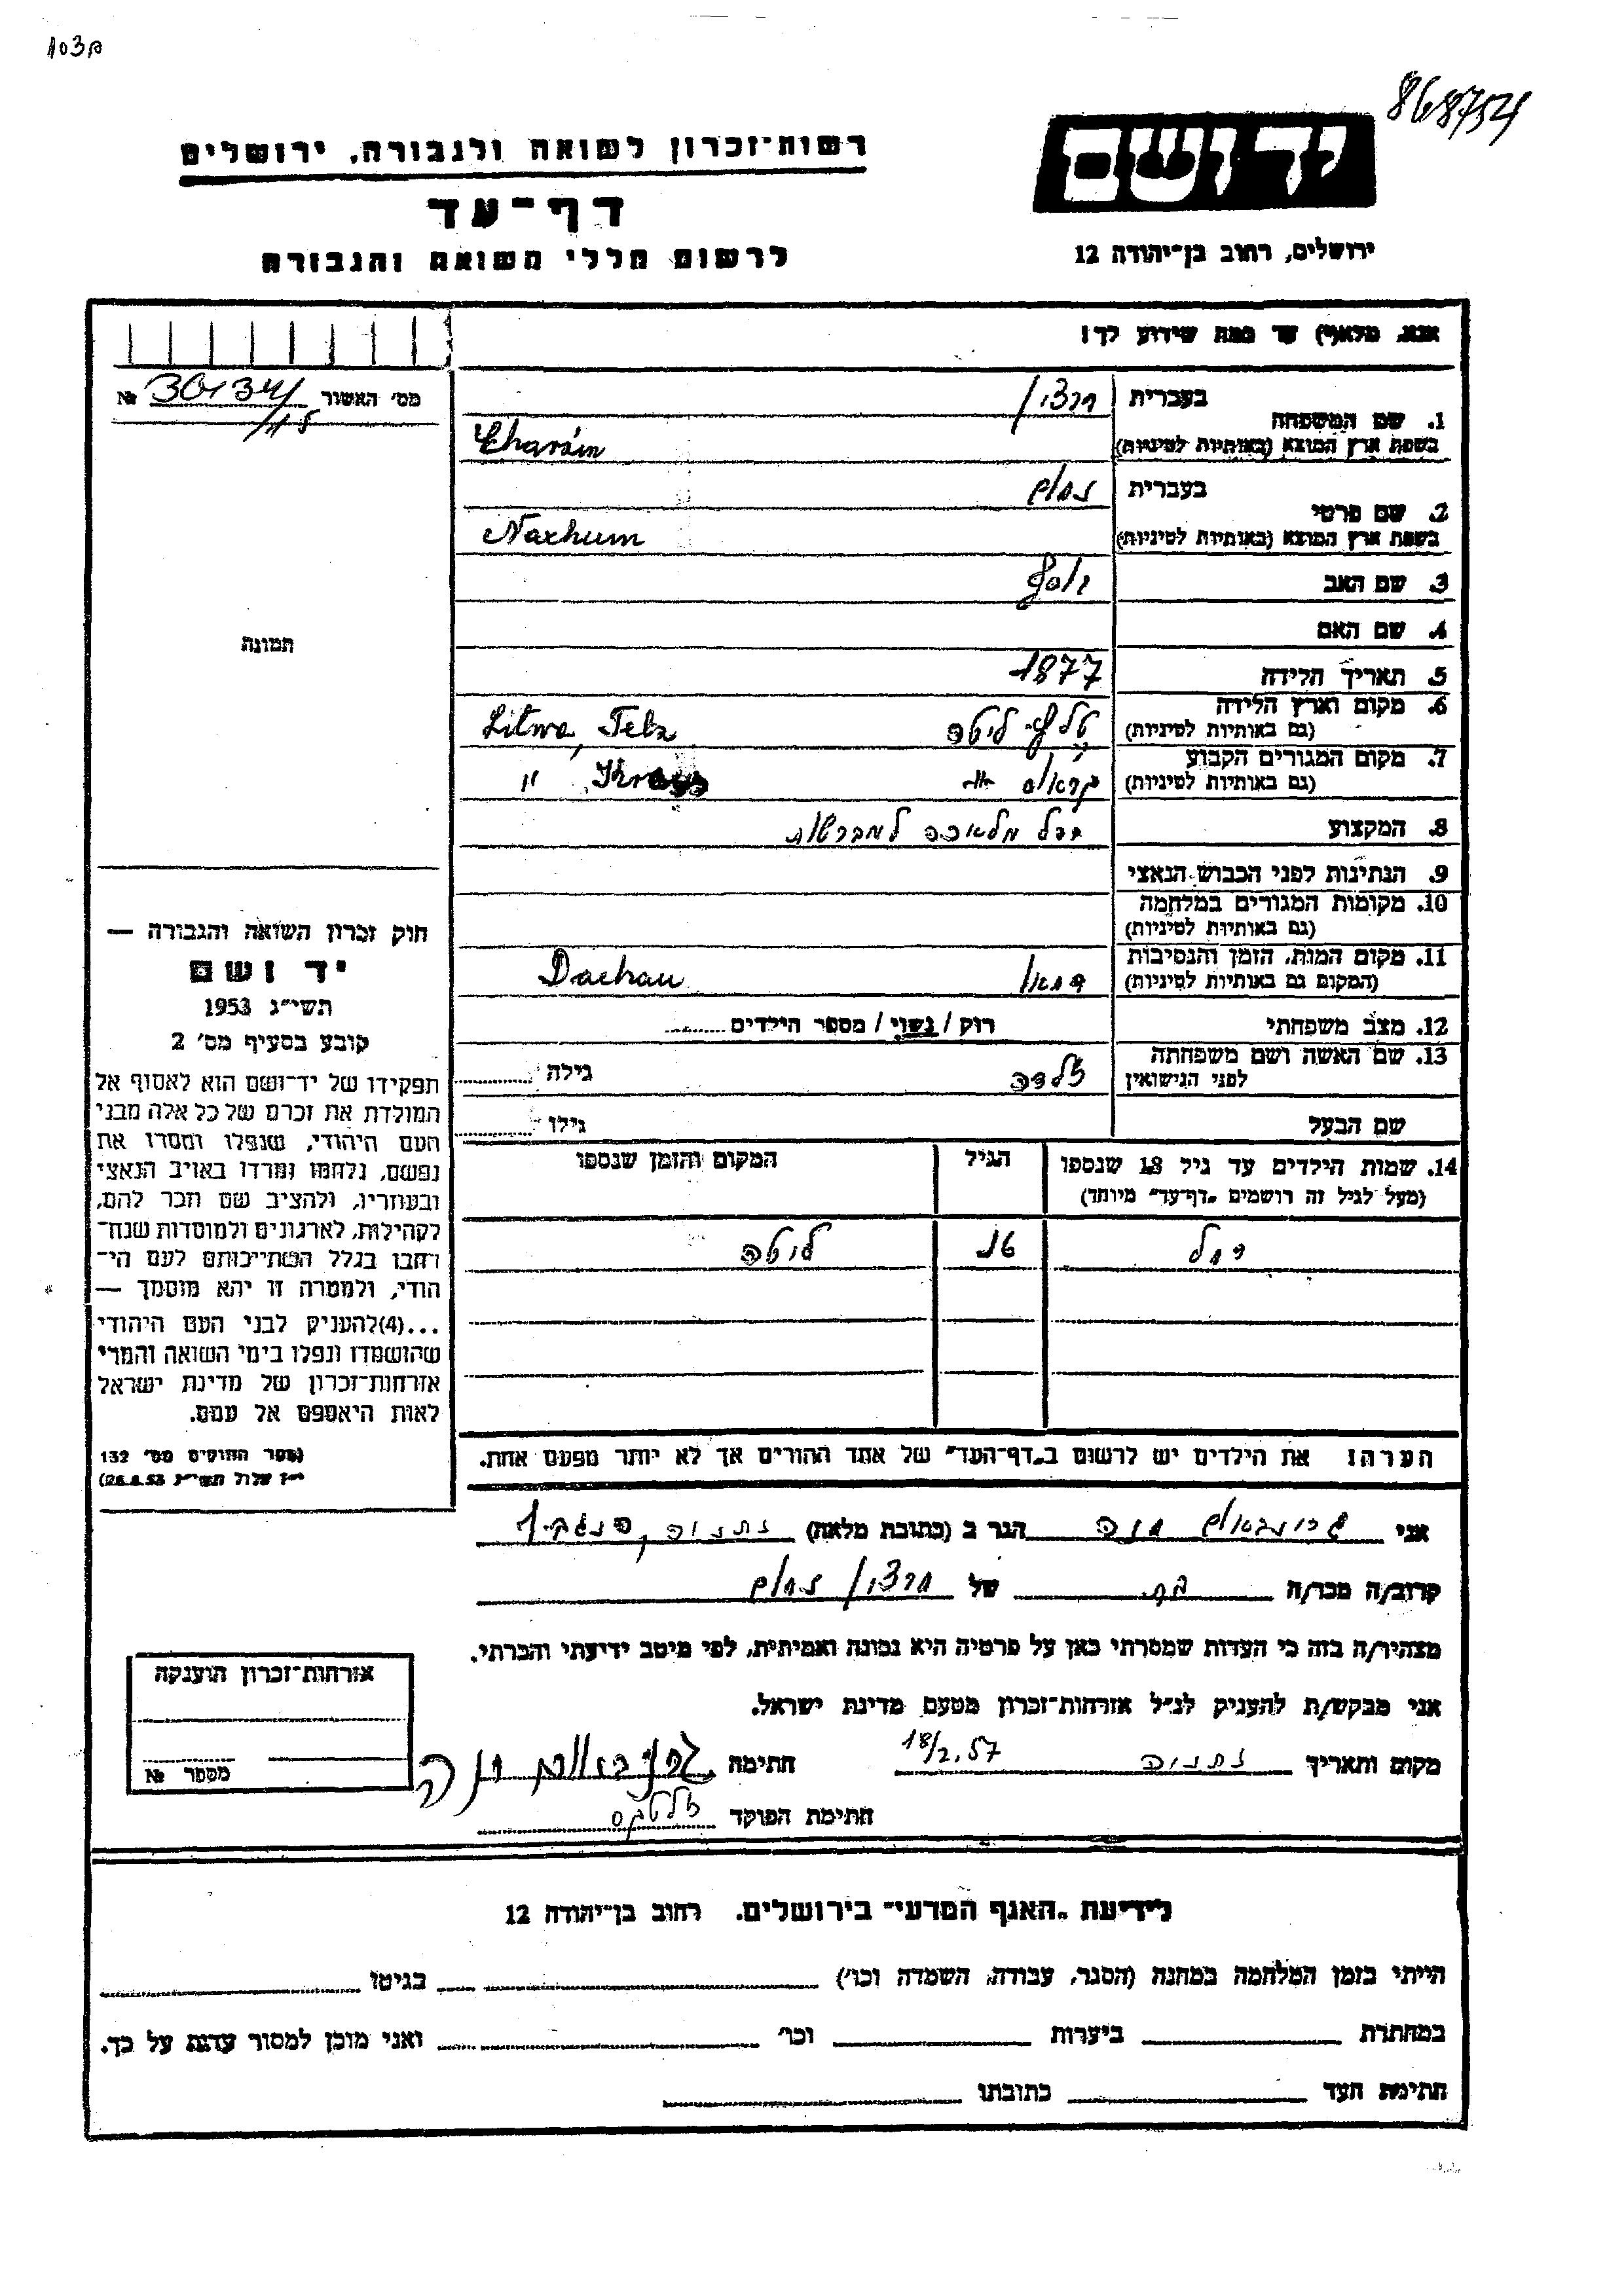 103ק
868754
יד ושם
ירושלים, רחוב בן־יהודה 12
רשות־זכרון לשואה ולגבורה. ירושלים
דף־עד
לרשום חללי השואה והגבורה
אנא, מלא(י) עד כמה שידוע לך!
1. שם המשפחה
בעברית חרצון
בשפת ארץ המוצא (באותיות לטיניות) Charsin
2. שם פרטי
בעברית נחום
בשפת ארץ המוצא (באותיות לטיניות) Nachum
3. שם האב יוסף
4. שם האם
5. תאריך הלידה 1877
6. מקום וארץ הלידה
(גם באותיות לטיניות) ליטה Litwa, Telz
7. מקום המגורים הקבוע
(גם באותיות לטיניות) "
8. המקצוע בעל מלאכה למברשות
9. הנתינות לפני הכבוש הנאצי
10. מקומות המגורים במלחמה
(גם באותיות לטיניות)
11. מקום המות, הזמן והנסיבות
(המקום גם באותיות לטיניות) דכאו Dachau
12. מצב משפחתי רוק / נשוי / מספר הילדים
13. שם האשה ושם משפחתה
לפני הנישואין זלדה גילה
שם הבעל גילו
14. שמות הילדים עד גיל 18 שנספו הגיל המקום והזמן שנספו
(מעל לגיל זה רושמים „דף־עד" מיוחד)
רחל 16 ליטה
הערה: את הילדים יש לרשום ב„דף־העד" של אחד ההורים אך לא יותר מפעם אחת.
מס' האשור 30134 №
/115
תמונה
חוק זכרון השואה והגבורה —
יד ושם
תשי"ג 1953
קובע בסעיף מס' 2
תפקידו של יד־ושם הוא לאסוף אל
המולדת את זכרם של כל אלה מבני
העם היהודי, שנפלו ומסרו את
נפשם, נלחמו ומרדו באויב הנאצי
ובעוזריו, ולהציב שם וזכר להם,
לקהילות, לארגונים ולמוסדות שנח־
רחבו בגלל השתייכותם לעם הי־
הודי, ולמטרה זו יהא מוסמך —
...(4)להעניק לבני העם היהודי
שהושמדו ונפלו בימי השואה והמרי
אזרחות־זכרון של מדינת ישראל
לאות היאספם אל עמם.
(ספר החוקים מס' 132
י"ז אלול תשי"ג 28.8.53)
אני גרינבאום חנה הגר ב (כתובת מלאה) נתניה
קרוב/ה מכר/ה בת של חרצון נחום
מצהיר/ה בזה כי העדות שמסרתי כאן על פרטיה היא נכונה ואמיתית, לפי מיטב ידיעתי והכרתי.
אני מבקש/ת להעניק לנ"ל אזרחות־זכרון מטעם מדינת ישראל.
מקום ותאריך נתניה 18/2.57 חתימה גרינבאום חנה
חתימת הפוקד
אזרחות־זכרון הוענקה
מספר №
לידיעת „האגף המדעי" בירושלים. רחוב בן־יהודה 12
הייתי בזמן המלחמה במחנה (הסגר, עבודה, השמדה וכו') בגיטו
במחתרת ביערות וכו' ואני מוכן למסור עדות על כך.
חתימת העד כתובתו